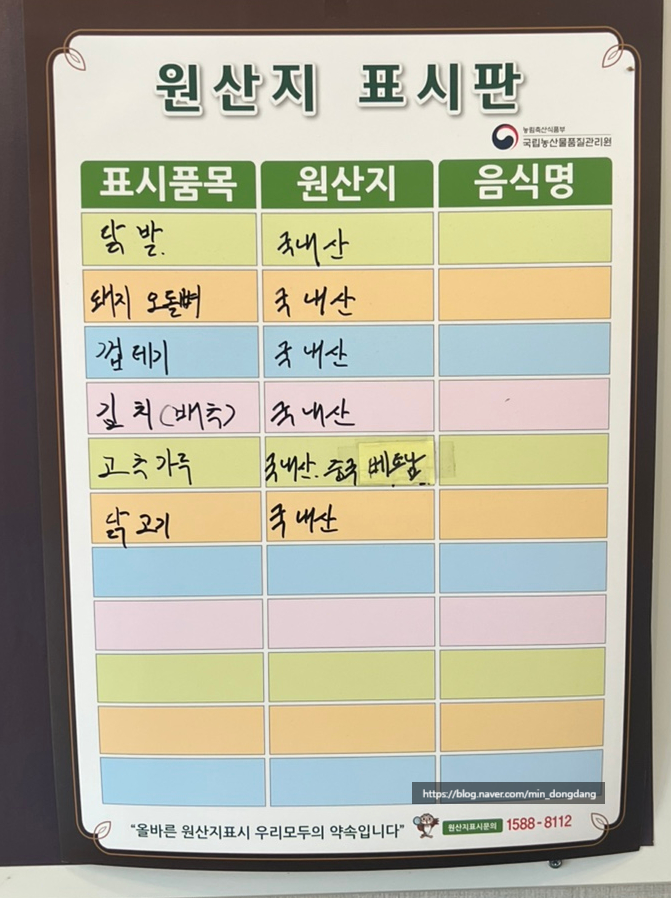 원산지 표시판
농림축산식품부
국립농산물품질관리원
표시품목 원산지 음식명
닭발 국내산
돼지 오돌뼈 국내산
껍데기 국내산
김치(배추) 국내산
고추가루 국내산. 중국 베트남
닭고기 국내산
https://blog.naver.com/min_dongdang
"올바른 원산지표시 우리모두의 약속입니다" 원산지표시문의 1588-8112